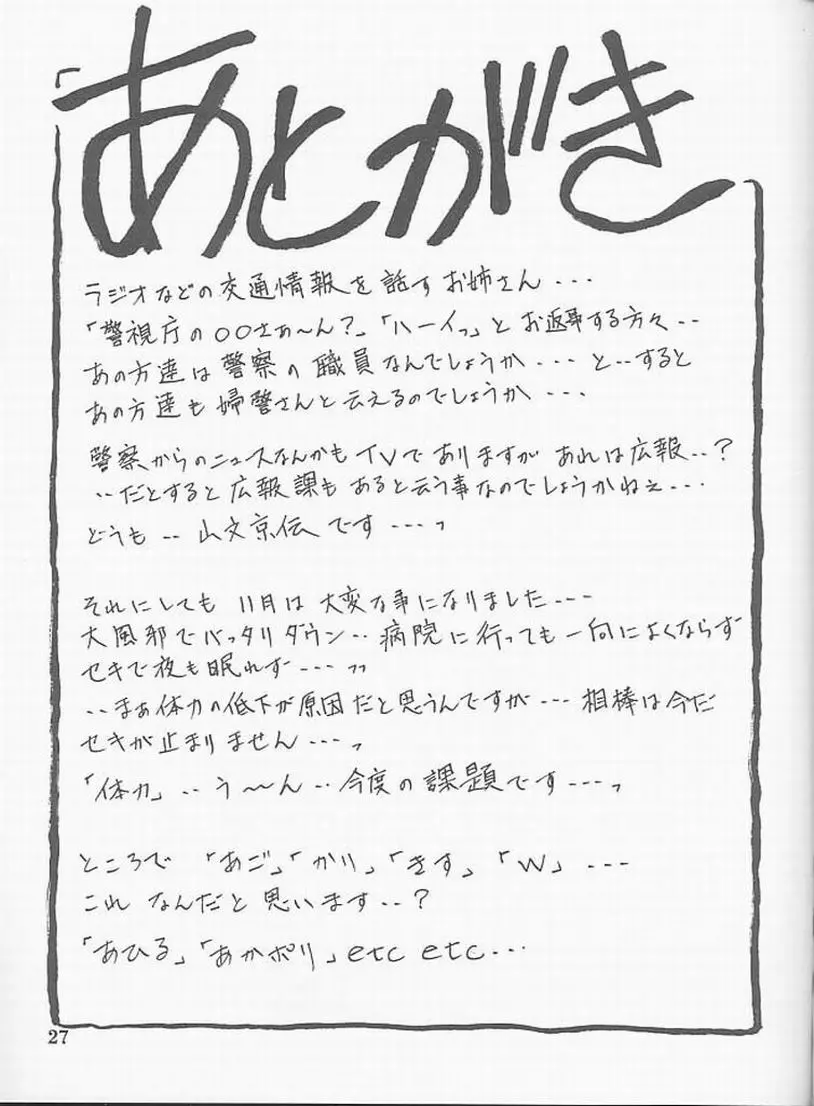 あとがき
ラジオなどの交通情報を話すお姉さん・・・
「警視庁の○○さぁ〜ん?」「ハーイっ」とお返事する方々・・
あの方達は警察の職員なんでしょうか・・・と・・すると
あの方達も婦警さんと云えるのでしょうか・・・
警察からのニュースなんかもTVでありますがあれは広報・・?
・・だとすると広報課もあると云う事なのでしょうかねぇ・・・
どうも・・山文京伝です・・・っ
それにしても 11月は大変な事になりました・・・
大風邪でバッタリダウン・・病院に行っても一向によくならず
セキで夜も眠れず・・・っっ
・・まぁ体力の低下が原因だと思うんですが・・・相棒は今だ
セキが止まりません・・・っ
「体力」・・う〜〜ん・・今度の課題です・・・っ
ところで「あご」「かり」「きす」「W」・・・
これなんだと思います・・?
「あひる」「あかポリ」etc etc・・・
27